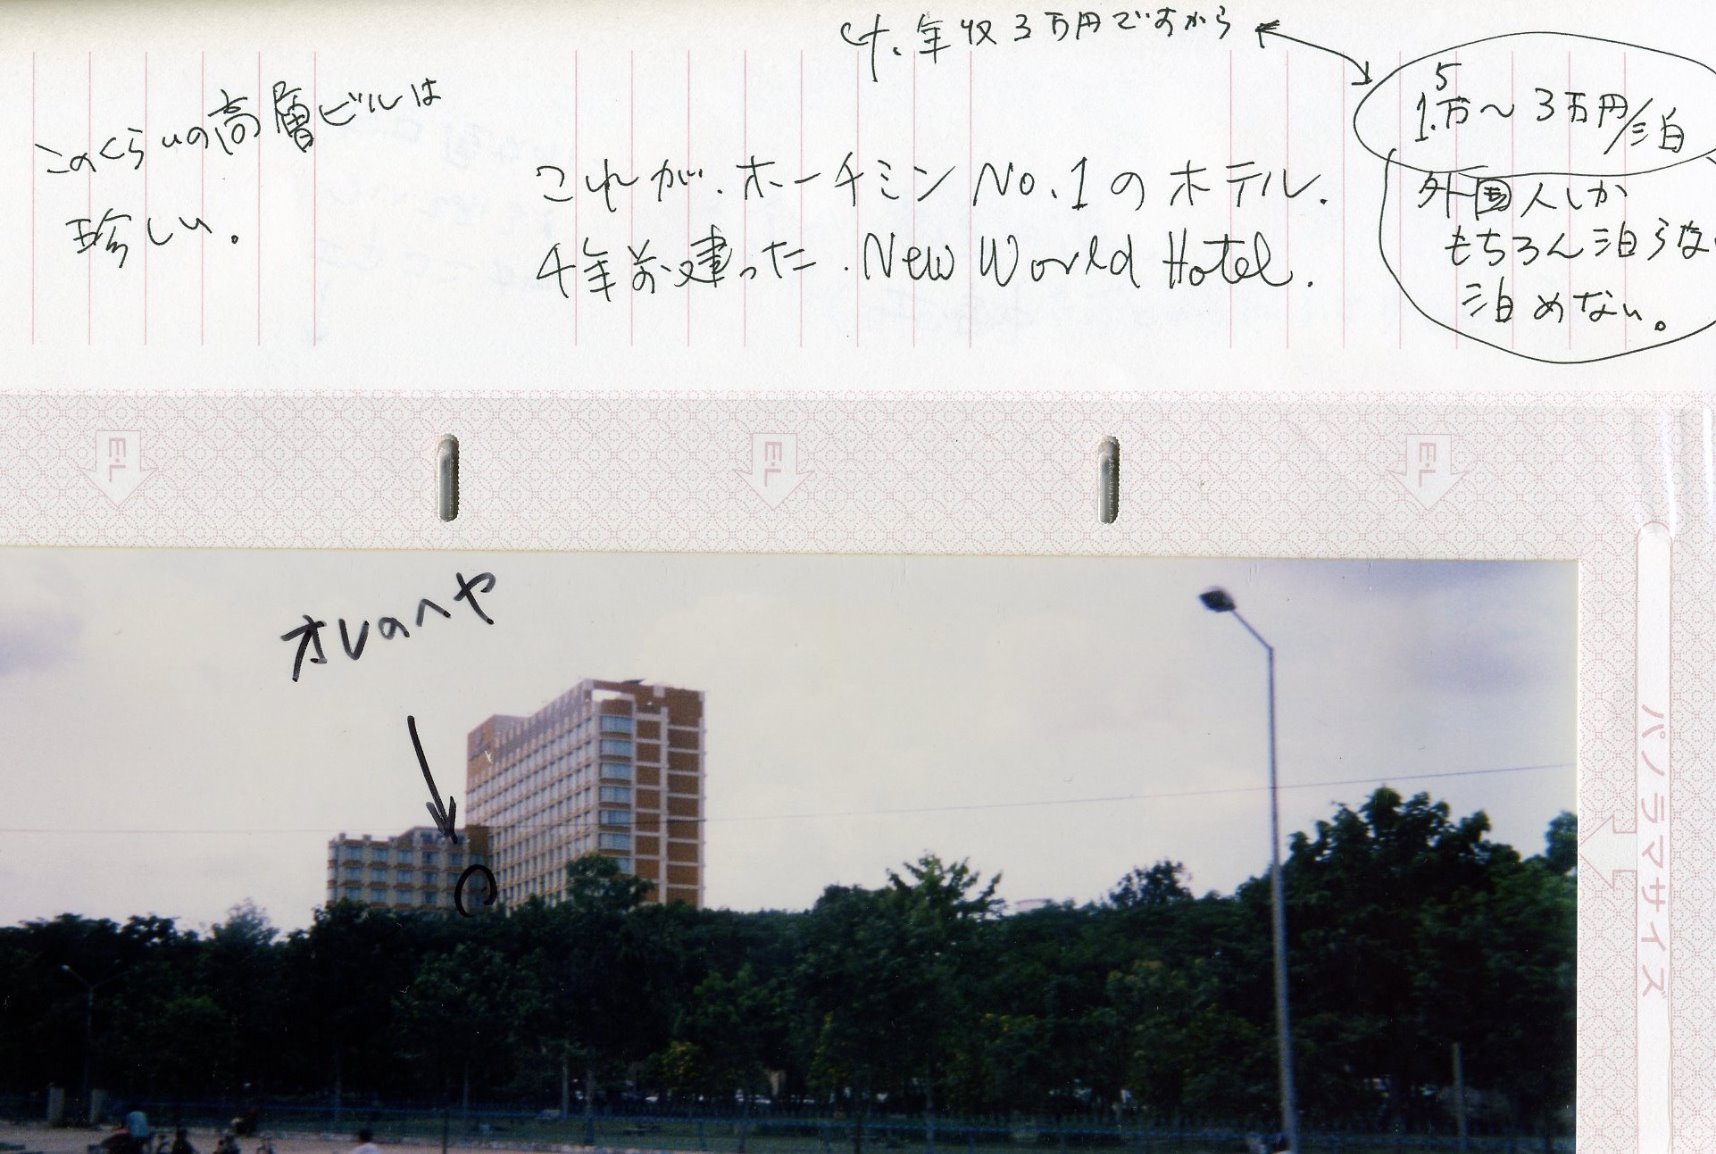 年収3万円ですから
このくらいの高層ビルは
珍しい。
これが、ホーチミン No.1のホテル.
4年前建った.New World Hotel.
1.5万〜3万円/泊
外国人しか
もちろん泊らない
泊めない。
E・L
E・L
E・L
オレのヘヤ
パノラマサイズ